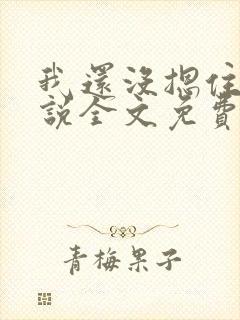 我還沒摁住
說全文免費
青梅果子